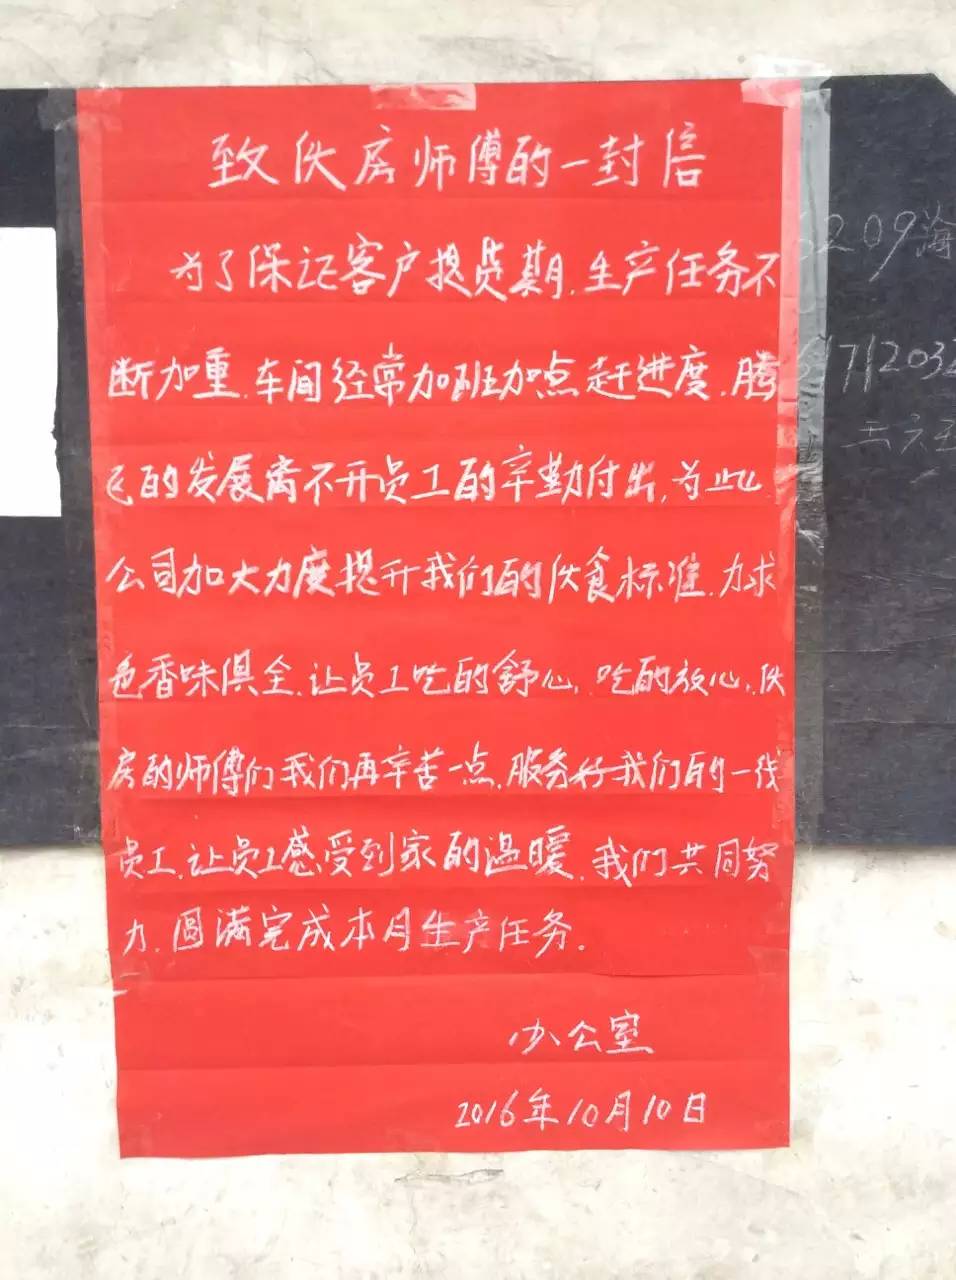 致伙房师傅的一封信
为了保证客户提货期.生产任务不
断加重.车间经常加班加点赶进度.腾
飞的发展离不开员工的辛勤付出.为此.
公司加大力度提升我们的伙食标准.力求
色香味俱全.让员工吃的舒心.吃的放心.伙
房的师傅们我们再辛苦一点.服务好我们的一线
员工.让员工感受到家的温暖.我们共同努
力.圆满完成本月生产任务.
办公室
2016年10月10日
209海
1712032